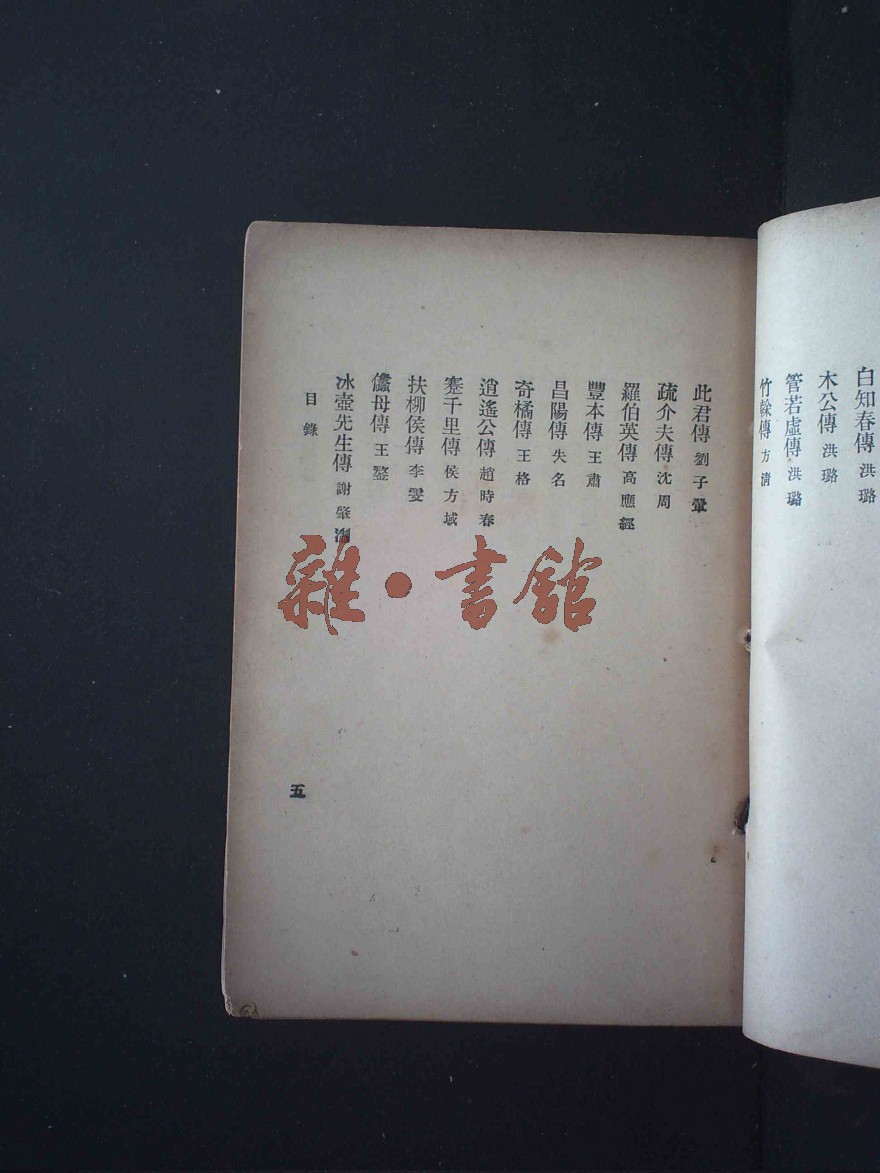 白知春傳 洪璐
木公傳 洪璐
管若虛傳 洪璐
竹𥴩傳 方清
此君傳 劉子翬
疏介夫傳 沈周
羅伯英傳 高應經
豐本傳 王肅
昌陽傳 失名
奇橘傳 王格
逍遙公傳 趙時春
蹇千里傳 侯方域
扶柳侯傳 李雯
母傳 王鏊
冰壺先生傳 謝肇淛
目錄
五
雜·書館